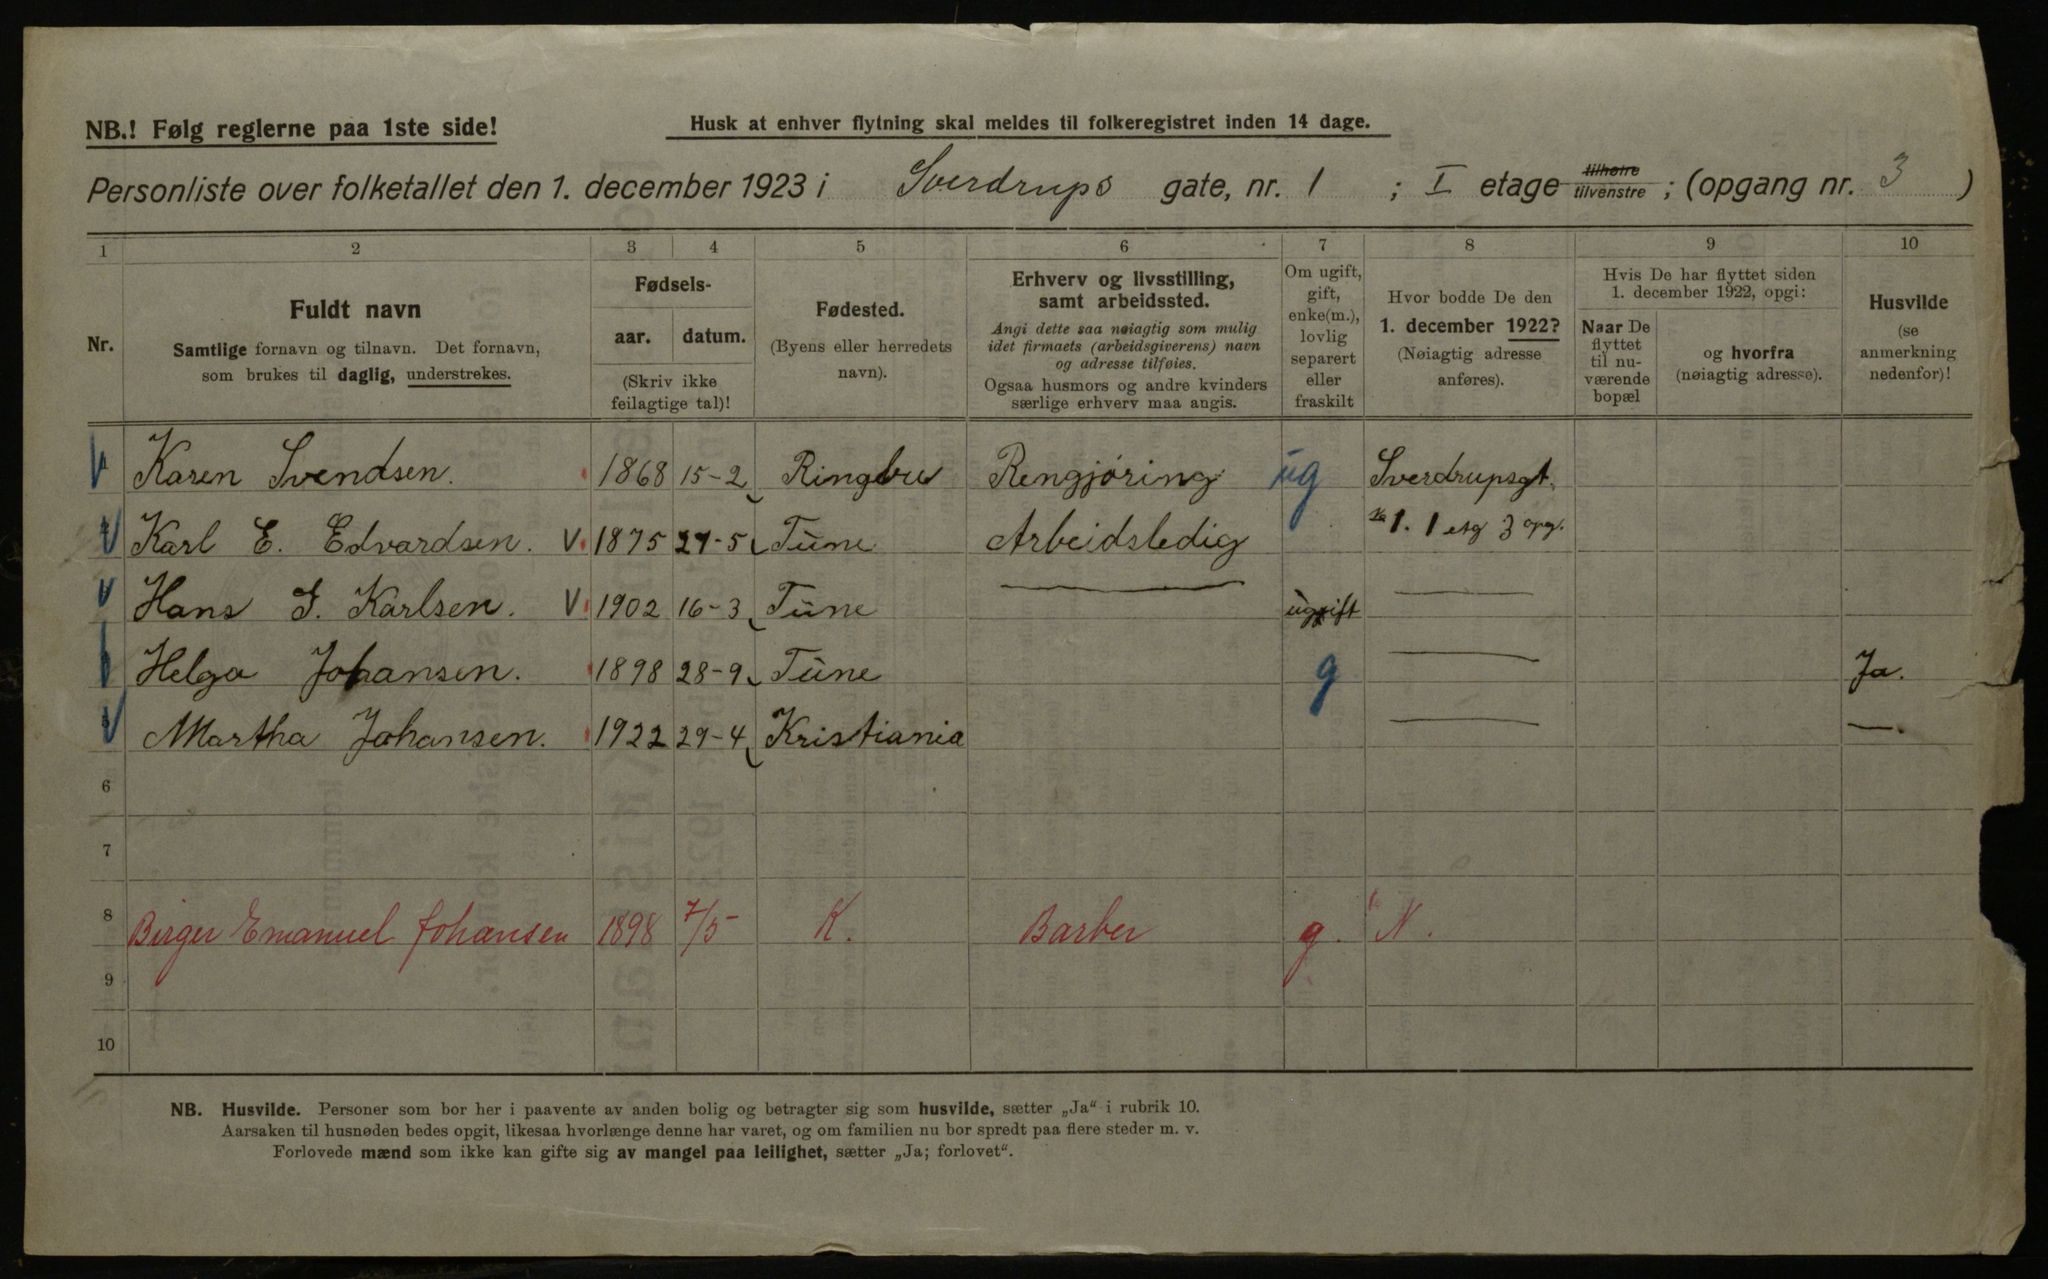 NB.! Følg reglerne paa 1ste side!
Husk at enhver flytning skal meldes til folkeregistret inden 14 dage.
Personliste over folketallet den 1. december 1923 i Sverdrups gate, nr. 1 ; I etage tilhøire tilvenstre ; (opgang nr. 3 )
1 2 3 4 5 6 7 8 9 10
Nr.
Fuldt navn
Samtlige fornavn og tilnavn. Det fornavn,
som brukes til daglig, understrekes.
Fødsels-
aar. datum.
(Skriv ikke
feilagtige tal)!
Fødested.
(Byens eller herredets
navn).
Erhverv og livsstilling,
samt arbeidssted.
Angi dette saa nøiagtig som mulig
idet firmaets (arbeidsgiverens) navn
og adresse tilføies.
Ogsaa husmors og andre kvinders
særlige erhverv maa angis.
Om ugift,
gift,
enke(m.),
lovlig
separert
eller
fraskilt
Hvor bodde De den
1. december 1922?
(Nøiagtig adresse
anføres).
Hvis De har flyttet siden
1. december 1922, opgi:
Naar De
flyttet
til nu-
værende
bopæl
og hvorfra
(nøiagtig adresse).
Husvilde
(se
anmerkning
nedenfor)!
Karen Svendsen. 1868 15-2 Ringbu Rengjøring ug Sverdrupsgt.
Karl E. Edvardsen. V. 1875 27-5 Tune Arbeidsledig 1. 1 etg 3 opg.
Hans G. Karlsen. V 1902 16-3 Tune — ugift —
Helga Johansen. 1898 28-9 Tune g — Ja.
Martha Johansen. 1922 29-4 Kristiania — —.
6
7
8 Birger Emanuel Johansen 1898 7/5 K. Barber g. N.
9
10
NB. Husvilde. Personer som bor her i paavente av anden bolig og betragter sig som husvilde, sætter „Ja“ i rubrik 10.
Aarsaken til husnøden bedes opgit, likesaa hvorlænge denne har varet, og om familien nu bor spredt paa flere steder m. v.
Forlovede mænd som ikke kan gifte sig av mangel paa leilighet, sætter „Ja; forlovet“.